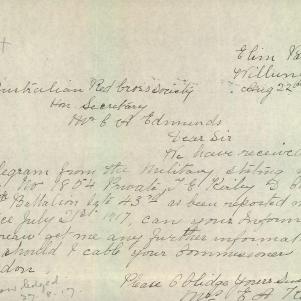 Elim
Willun
Aug 22nd
Australian Red Cross Society
Hon. Secretary
Mr C A Edmunds
Dear Sir
We have received
telegram from the Military stating
No 1854 Private E
Battalion late 43rd as been reported
July 21st 1917. can your Inform
Bureau get me any further informat
should I cable your Commissioner
London
Please Oblidge yours
Mrs E A
27.8.17.